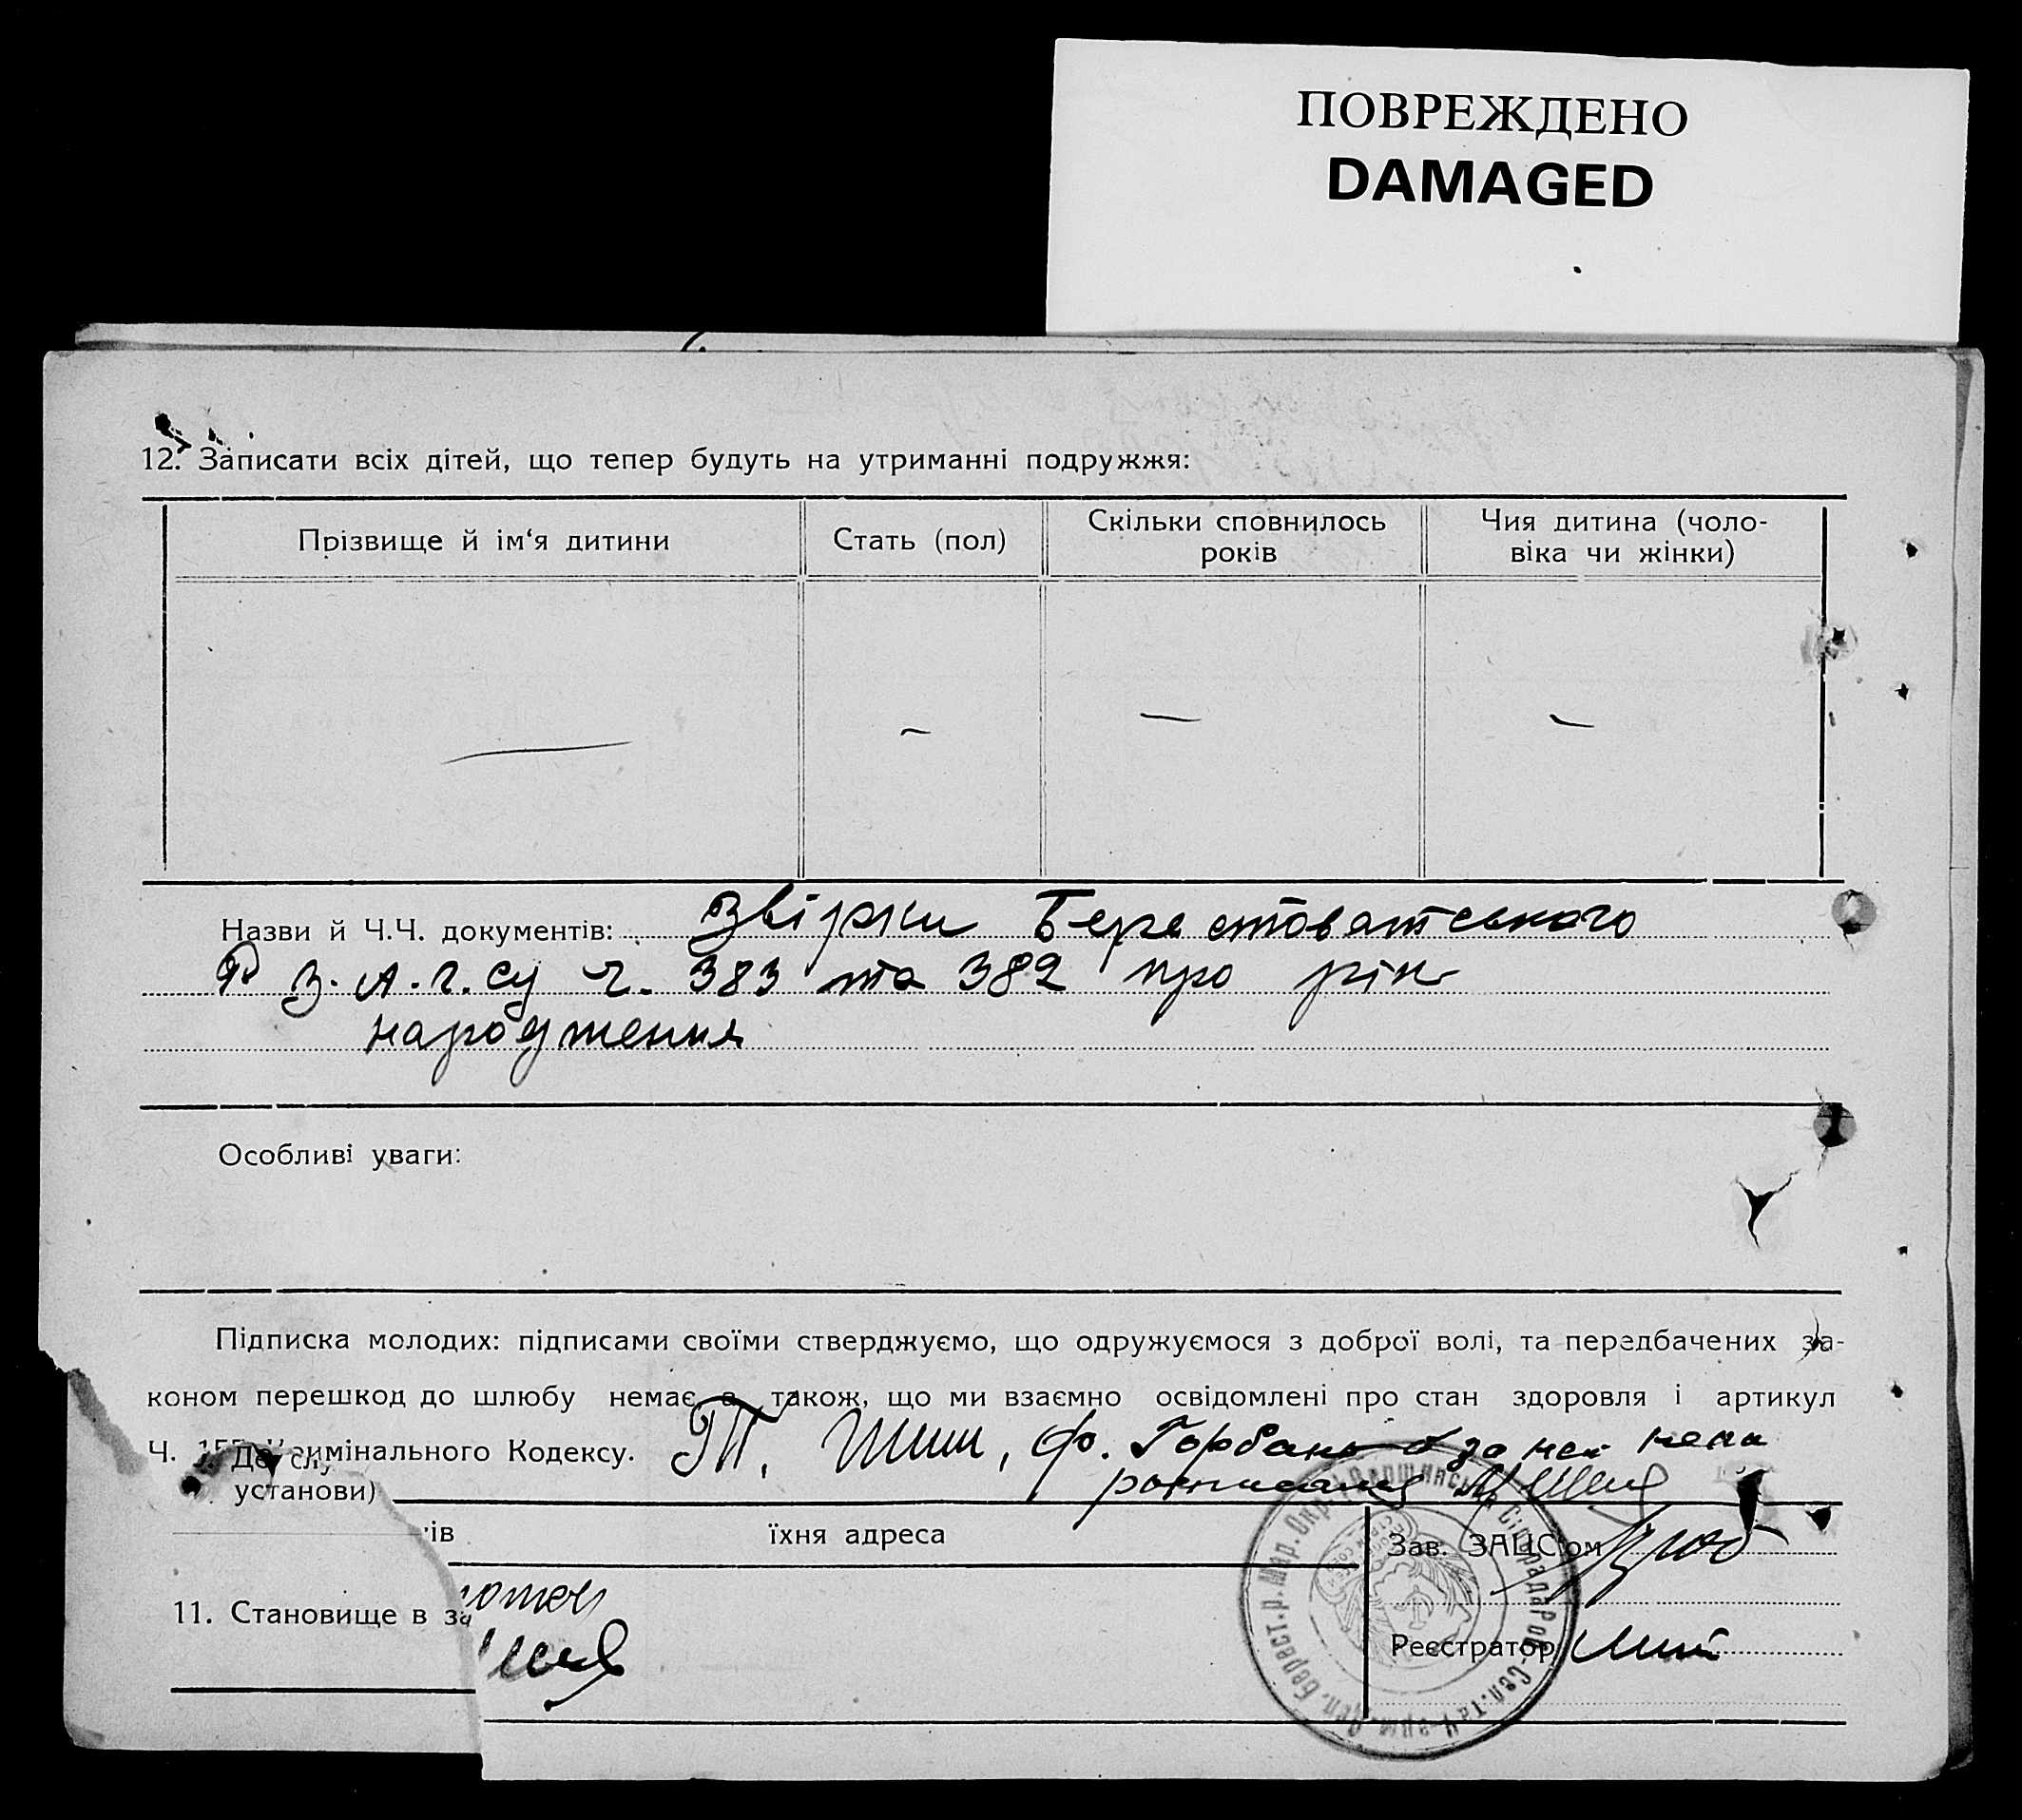 ПОВРЕЖДЕНО
DAMAGED
12. Записати всіх дітей, що тепер будуть на утриманні подружжя:
Прізвище й ім‘я дитини
Стать (пол)
Скільки сповнилось
років
Чия дитина (чоло-
віка чи жінки)
— — — —
Назви й Ч.Ч. документів: Звірки Берестоватського
Р З.А.Г.Су ч. 383 та 382 про рік
народження
Особливі уваги:
Підписка молодих: підписами своїми стверджуємо, що одружуємося з доброї волі, та передбачених за-
коном перешкод до шлюбу немає, а також, що ми взаємно освідомлені про стан здоровля і артикул
Ч. 155 Кримінального Кодексу. Ф. Горбань за
установи)
ів
їхня адреса
Зав. ЗАЦСом
11. Становище в за
Реєстратор